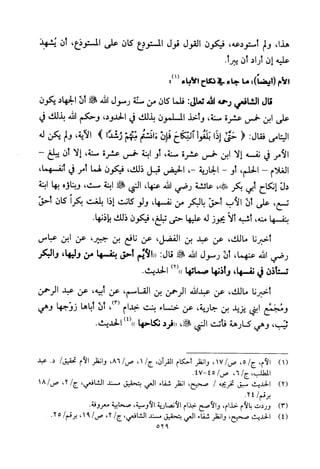 هذا، ولم أستودعه، فيكون القول قول المستودع كان على المستودَع، أن يُشهِد
عليه إن أراد أن يبرأ.
الأم (أيضاً): ما جاء في نكاح الآباء (١):
قال الشافعي رحمه الله تعالى: فلما كان من سنّة رسول الله ﷺ أنّ الجهاد يكون
على ابن خمس عشرة سنة، وأخذ المسلمون بذلك في الحدود، وحكم الله بذلك في
اليتامى فقال: ﴿ حَتَّىٰٓ إِذَا بَلَغُوا۟ ٱلنِّكَاحَ فَإِنْ ءَانَسْتُم مِّنْهُمْ رُشْدًا ﴾ الآية، ولم يكن له
الأمر في نفسه إلا ابن خمس عشرة سنة، أو ابنة خمس عشرة سنة، إلا أن يبلغ -
الغلام - الحلم، أو - الجارية -، الحيض قبل ذلك، فيكون لهما أمر في أنفسهما،
دلّ إنكاح أبي بكر ﷺ، عائشة رضي الله عنها، النبي ﷺ ابنة ست، وبناؤه بها ابنة
تسع، على أنّ الأب أحقّ بالبكر من نفسها، ولو كانت إذا بلغت بكراً كان أحقّ
بنفسها منه، أشبه ألاّ يجوز له عليها حتى تبلغ، فيكون ذلك بإذنها.
أخبرنا مالك، عن عبد بن الفضل، عن نافع بن جبير، عن ابن عباس
رضي الله عنهما، أنّ رسول الله ﷺ قال: «الأيّم أحق بنفسها من وليها، والبكر
تستأذن في نفسها، وإذنها صماتها» (٢) الحديث.
أخبرنا مالك، عن عبدالله الرحمن بن القاسم، عن أبيه، عن عبد الرحمن
ومُجمع ابني يزيد بن جارية، عن خنساء بنت خِدام (٣)، أنّ أباها زوّجها وهي
ثيّب، وهي كارهة فأتت النبي ﷺ، «فرد نكاحها» (٤) الحديث.
(١) الأم، ج/٥، ص/١٧، وانظر أحكام القرآن، ج/١، ص/٨٦، وانظر الأم تحقيق/ د. عبد
المطلب، ج/٦، ص/٤٥-٤٧.
(٢) الحديث سبق تخريجه / صحيح، انظر شفاء العي بتحقيق مسند الشافعي، ج/٢، ص/١٨
برقم/٢٤.
(٣) وردت بالأم خدام، والأصح خذام الأنصارية الأوسية، صحابية معروفة.
(٤) الحديث صحيح، وانظر شفاء العي بتحقيق مسند الشافعي، ج/٢، ص/١٩، برقم/٢٥.
٥٢٩